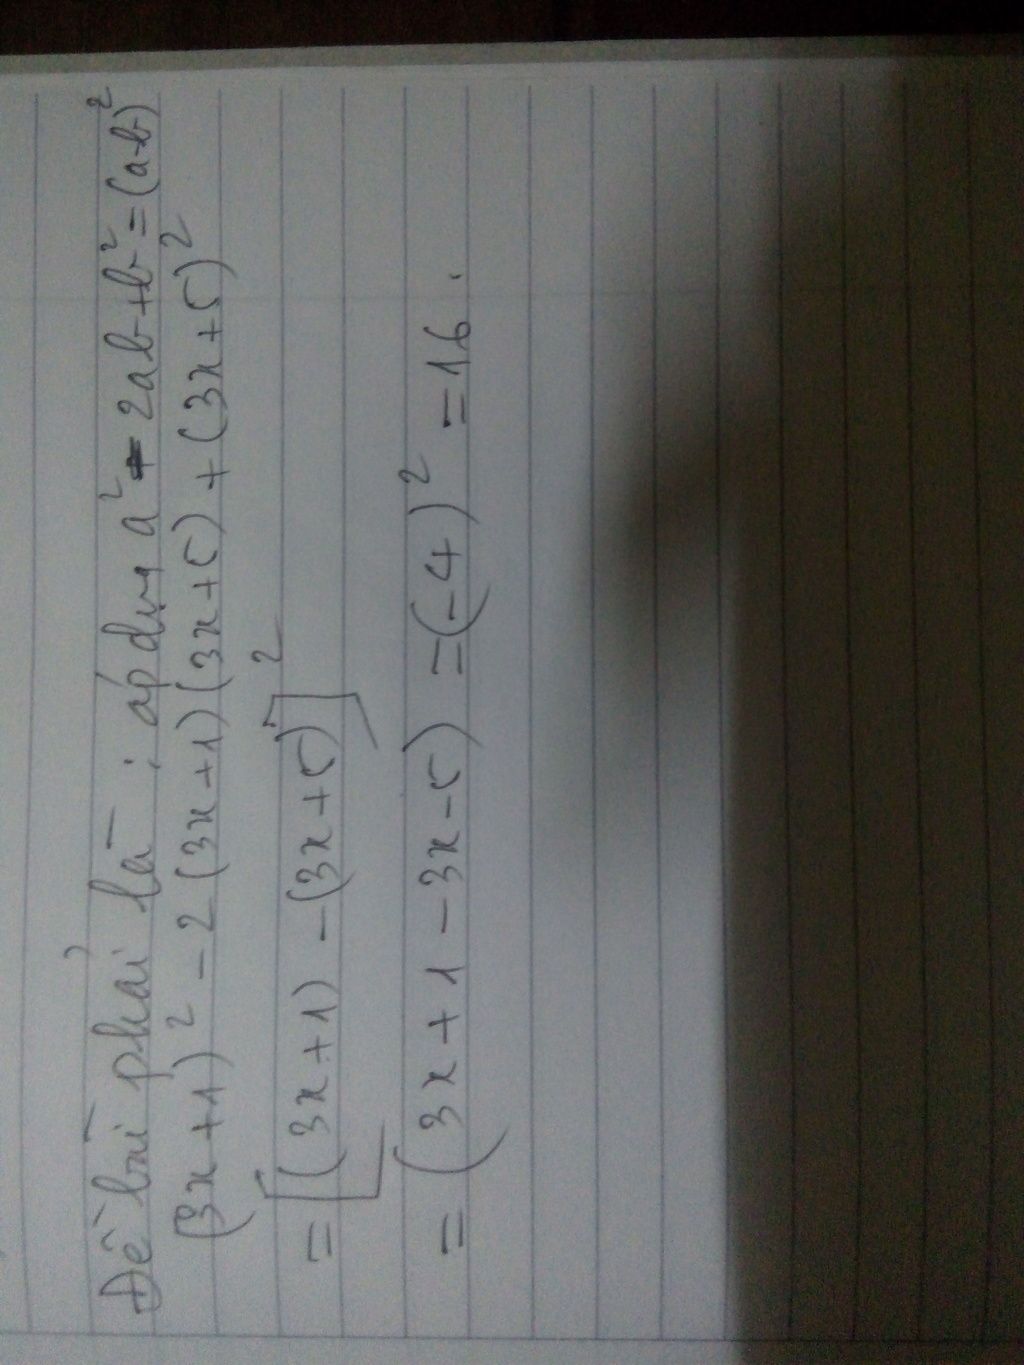 Đề bài phải là; áp dụng a² - 2ab + b² = (a-b)²
(3x+1)² - 2(3x+1)(3x+5) + (3x+5)²
= [(3x+1) - (3x+5)]²
= (3x+1-3x-5) = (-4)² = 16.